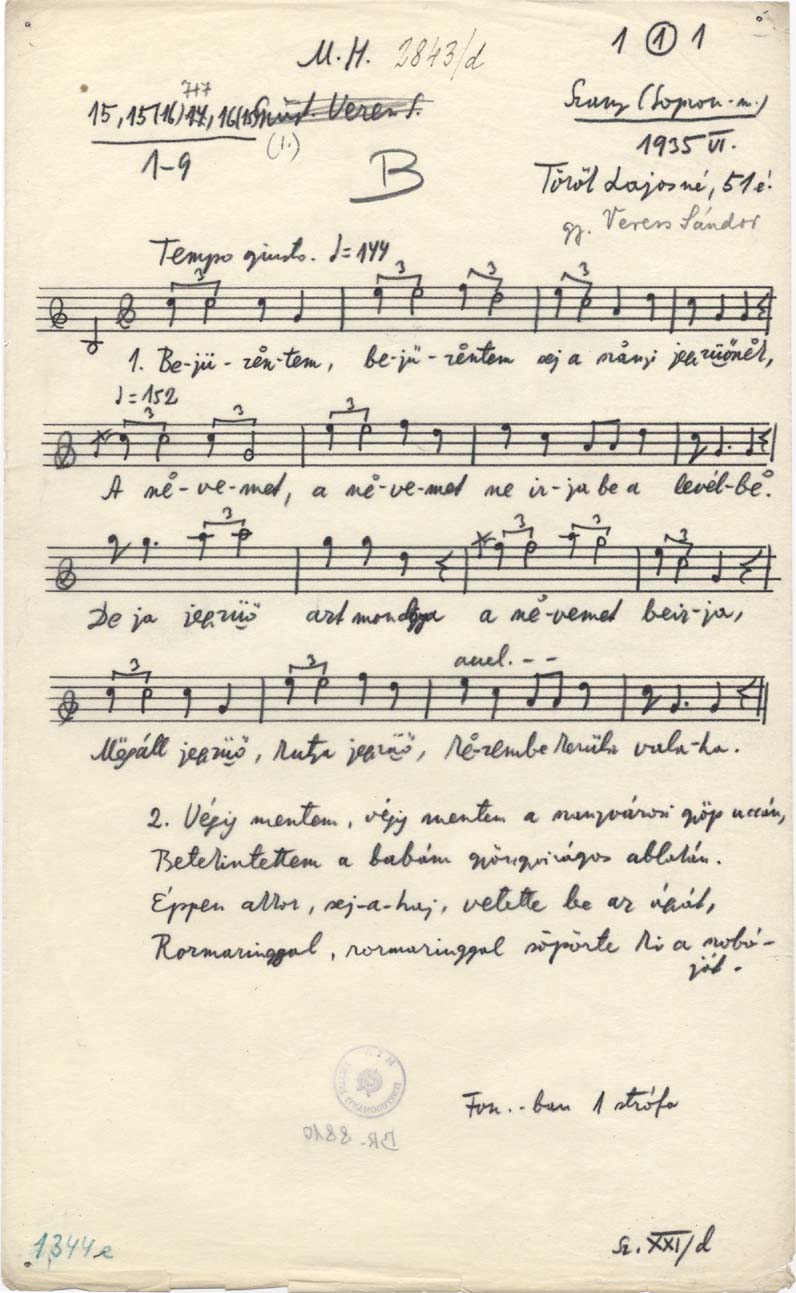 M.H. 2843/d
1 1 1
7+7
15, 15(16) 17, 16(15)
Veress S.
(1.)
1-9
B
Szany (Sopron-m.)
1935 VI.
Töről Lajosné, 51 é.
gy. Veress Sándor
Tempo giusto. ♩=144
3 3 3 3
1. Be-jü-rën-tem, be-jü-rëntem sej a szånyi jegyzüőnët,
♩=152
3 3 3
A në-ve-met, a në-ve-met ne ir-ja be a levél-bë.
3 3 3 3
De ja jegyzüő azt mondgya a në-vemet beir-ja,
3 3 auel. - -
Mëgáll jegyzüő, kutya jegyzüő, kë-zembe kerülsz vala-ha.
2. Végig mentem, végig mentem a szanyvárosi göp uccán,
Betekintettem a babám gyöngyvirágos ablakán.
Éppen akkor, sej-a-haj, vetette be az ágyát,
Rozmaringgal, rozmaringgal söpörte ki a szobá-
ját.
BR-8810
Fon.-ban 1 strófa
1344e
Sz. XXI/d